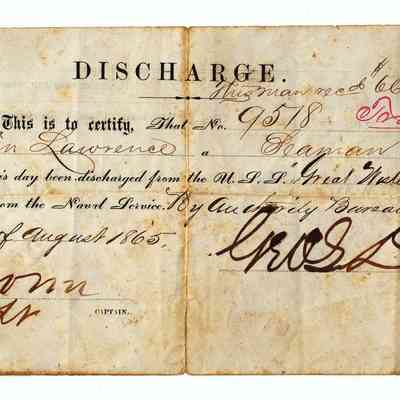 DISCHARGE.
This man rec'd $66
This is to certify, That No. 9518
n Lawrence a Seaman
is day been discharged from the U. S. S. Great West
rom the Naval Service. By Authority Bureau
of August 1865.
CAPTAIN.